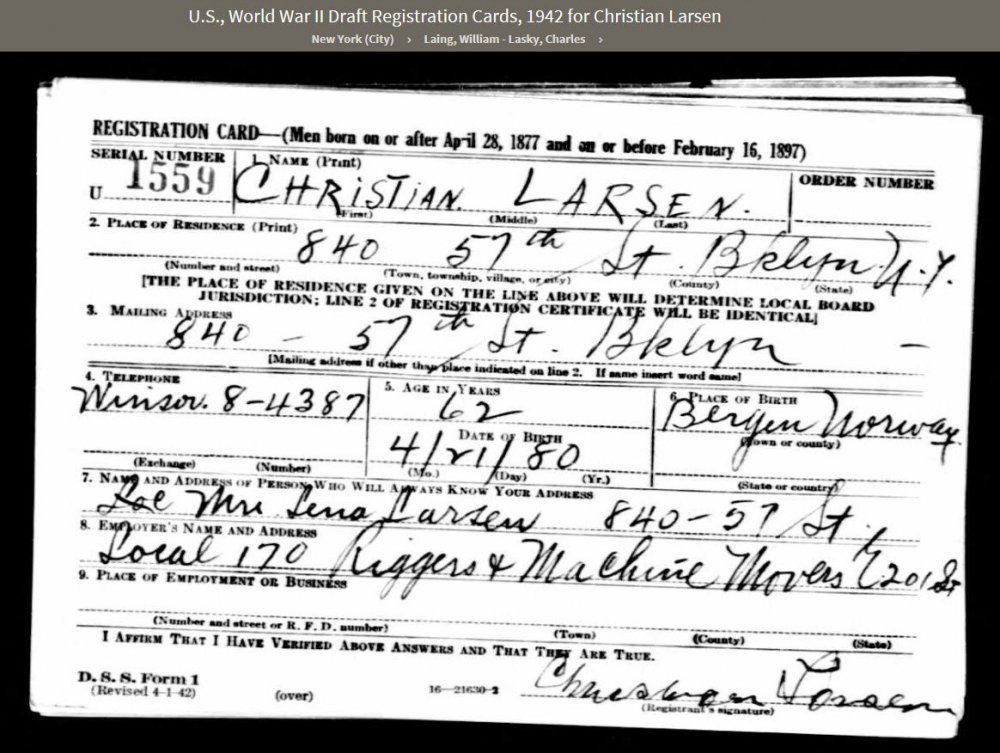 U.S., World War II Draft Registration Cards, 1942 for Christian Larsen
New York (City) › Laing, William - Lasky, Charles ›
REGISTRATION CARD—(Men born on or after April 28, 1877 and on or before February 16, 1897)
SERIAL NUMBER 1. NAME (Print) ORDER NUMBER
U 1559 CHRISTIAN. LARSEN.
(First) (Middle) (Last)
2. PLACE OF RESIDENCE (Print)
840 57th St. Bklyn N.Y.
(Number and street) (Town, township, village, or city) (County) (State)
[THE PLACE OF RESIDENCE GIVEN ON THE LINE ABOVE WILL DETERMINE LOCAL BOARD
JURISDICTION; LINE 2 OF REGISTRATION CERTIFICATE WILL BE IDENTICAL]
3. MAILING ADDRESS
840 - 57th St. Bklyn -
[Mailing address if other than place indicated on line 2. If same insert word same]
4. TELEPHONE 5. AGE IN YEARS 6. PLACE OF BIRTH
Winsor. 8-4387 62 Bergen Norway.
DATE OF BIRTH (Town or county)
4/21/80
(Exchange) (Number) (Mo.) (Day) (Yr.) (State or country)
7. NAME AND ADDRESS OF PERSON WHO WILL ALWAYS KNOW YOUR ADDRESS
Mrs Lena Larsen 840-57 St.
8. EMPLOYER'S NAME AND ADDRESS
Local 170 Riggers & Machine Movers E 20 St
9. PLACE OF EMPLOYMENT OR BUSINESS
(Number and street or R. F. D. number) (Town) (County) (State)
I AFFIRM THAT I HAVE VERIFIED ABOVE ANSWERS AND THAT THEY ARE TRUE.
D. S. S. Form 1
(Revised 4-1-42) (over) 16—21630-2 Christian Larsen
(Registrant's signature)